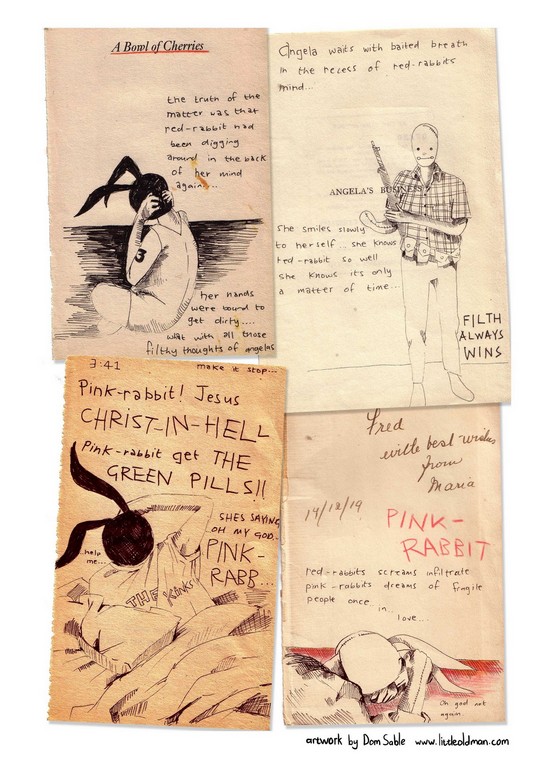 A Bowl of Cherries
the truth of the
matter was that
red-rabbit had
been digging
around in the back
of her mind
again...
3
her hands
were bound to
get dirty....
what with all those
filthy thoughts of angelas
make it stop...
Angela waits with baited breath
in the recess of red-rabbits
mind...
ANGELA'S BUSINESS
She smiles slowly
to herself... she knows
red-rabbit so well
she knows it's only
a matter of time...
FILTH
ALWAYS
WINS
3:41
Pink-rabbit! Jesus
CHRIST-IN-HELL
Pink-rabbit get THE
GREEN PILLS!!
SHES SAYING
OH MY GOD..
PINK-
RABB...
..help
me...
THE KINKS
Fred
with best wishes
from
Maria
19/12/19
PINK-
RABBIT
red-rabbits screams infiltrate
pink-rabbits dreams of fragile
people once
in...
love...
Oh god not
again.
artwork by Dom Sable www.littleoldman.com